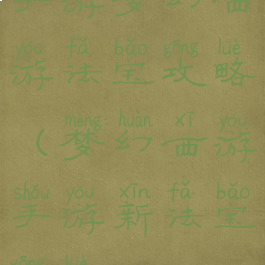 手游梦幻西
yóu fǎ bǎo gōng lüè
游法宝攻略
mèng huàn xī yóu
（梦幻西游
shǒu yóu xīn fǎ bǎo
手游新法宝
gōng lüè